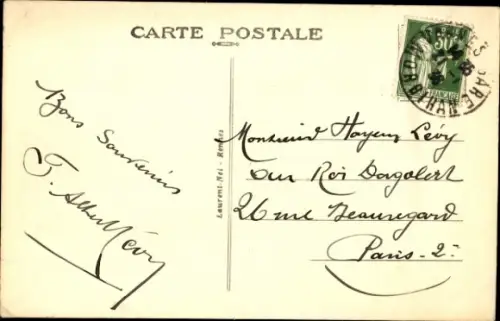 CARTE POSTALE
Bons Souvenirs
F. Albert Lévy
Laurent-Nel - Rennes
50
FRANCAISE
RENNES GARE
Monsieur Hayem Lévy
au Roi Dagobert
26 rue Beauregard
Paris - 2e